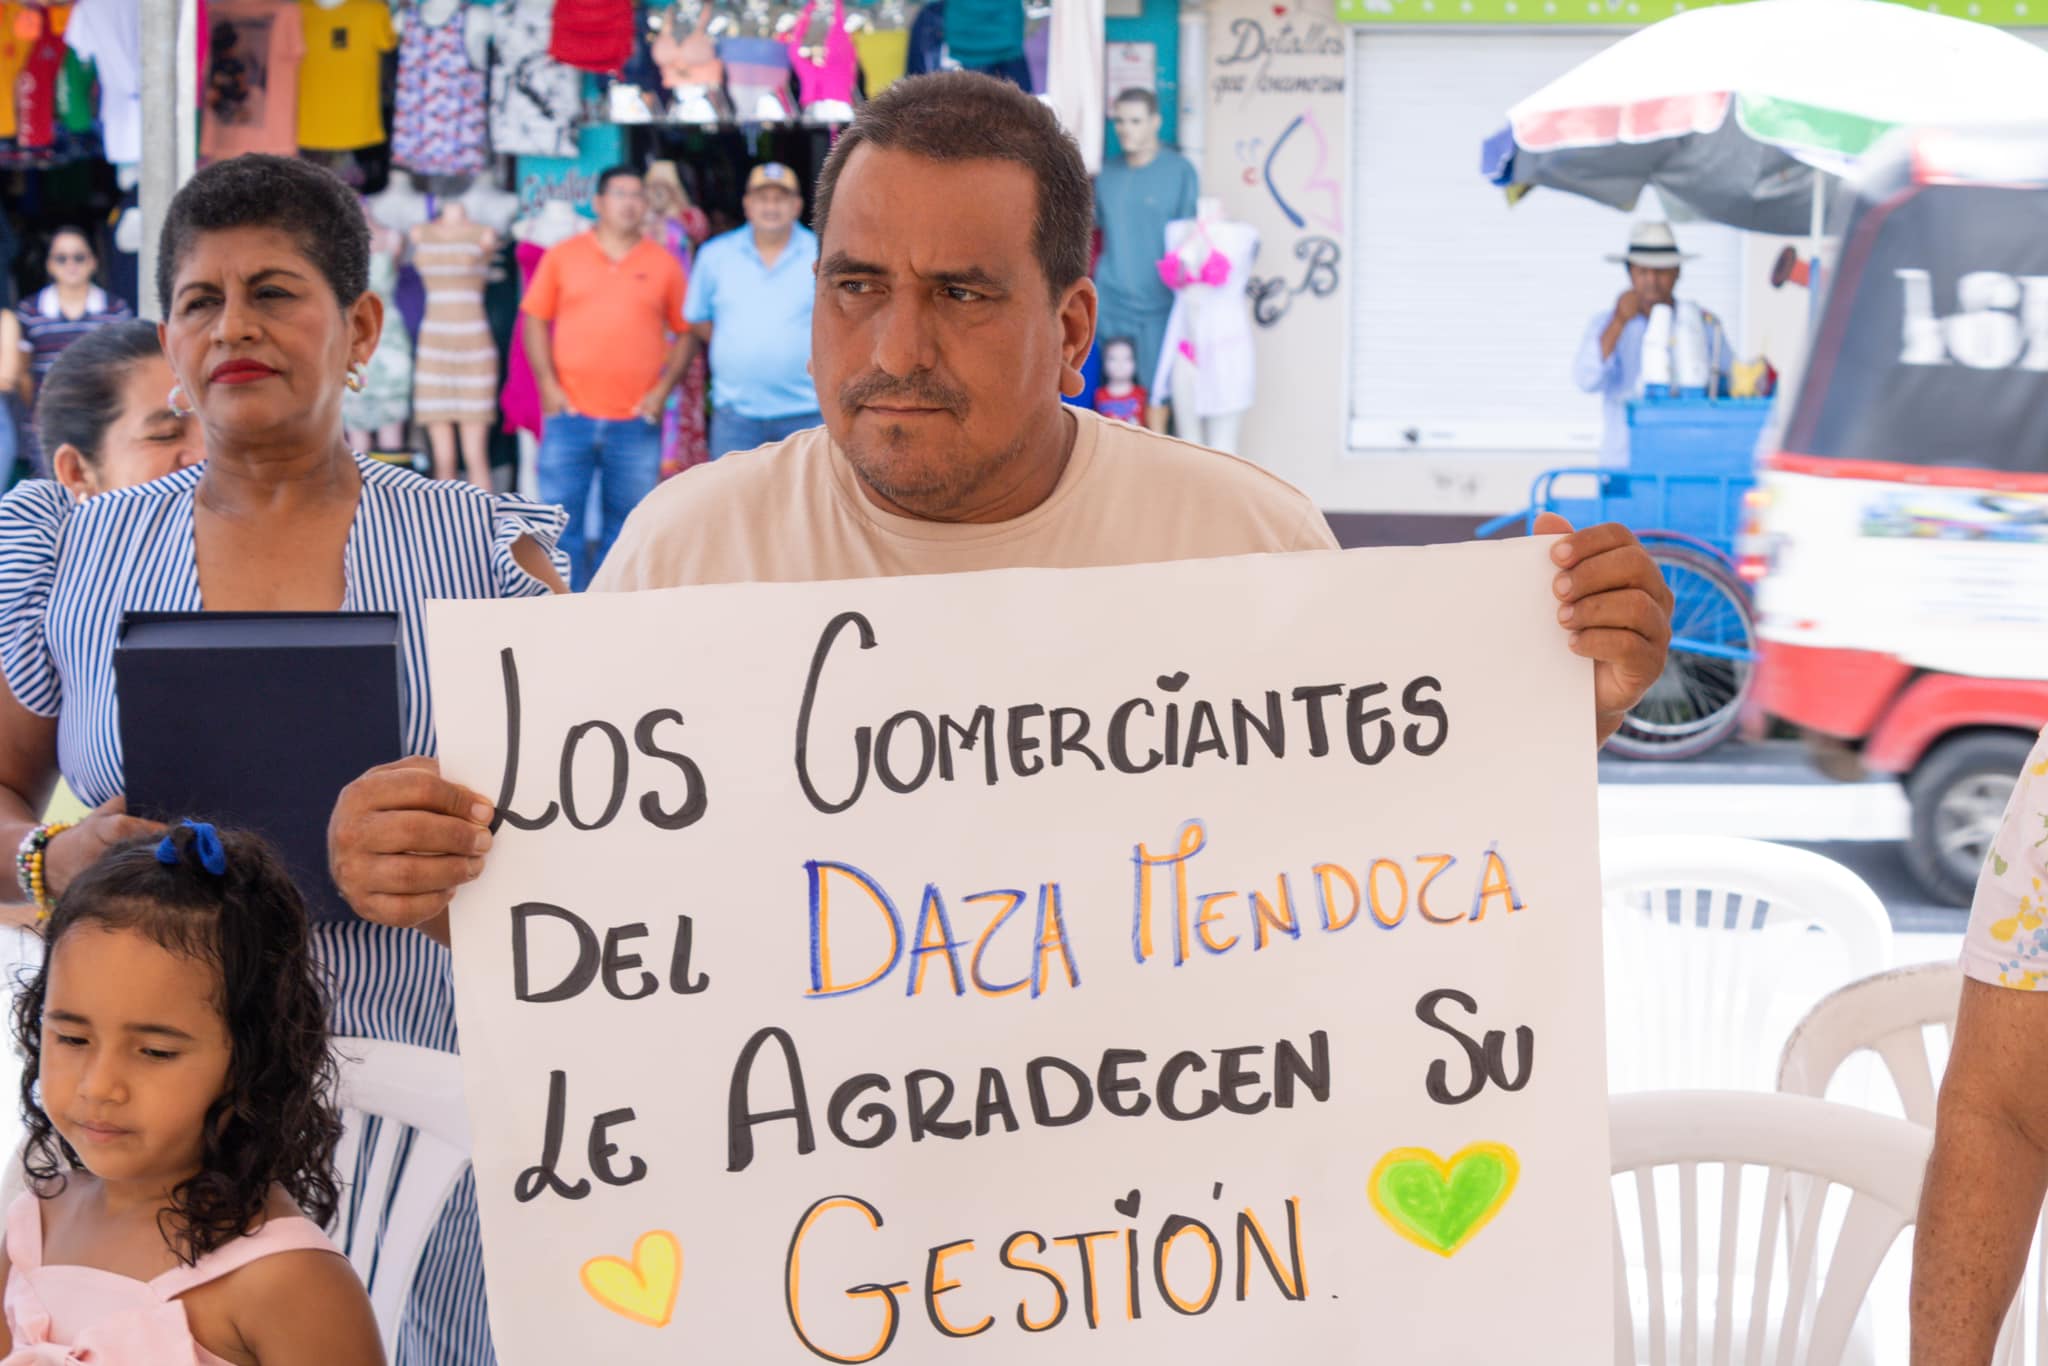 Detalles
que Enamoran
C B
LOS COMERCIANTES
DEL DAZA MENDOZA
LE AGRADECEN SU
GESTIÓN.